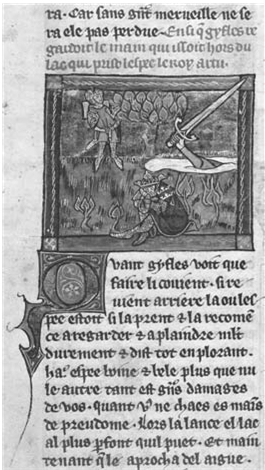 ra. Car sans gñt merveille ne se
ra ele pas perdue. Ensi q̃ gyfles re
gardoit le main qui issoit hors du
lac qui prist lespee le roy artu.
Quant gyfles voit que
faire li covient. si re
vient arriere la ou les
pee estoit si la prent & la recomẽ
ce a regarder & a plaindre mlt
durement & dist tot en plorant.
ha. espee bone & bele plus que
nule autre tant est gñs damages
de vos. quant vꝰ ne chaes es mais
de preudome. Lors la lance el lac
al plus ꝑfont quil puet. Et main
tenant q̃ le aprocha del aigue.